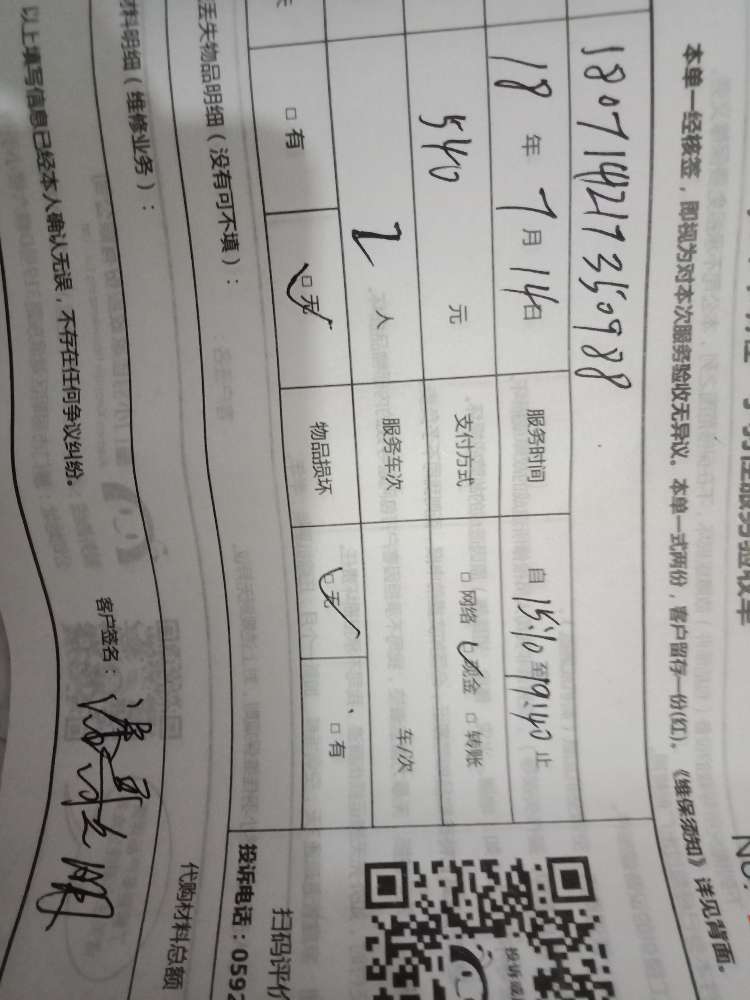 服务验收单
No.
本单一经核签，即视为对本次服务验收无异议。本单一式两份，客户留存一份(红)。《维保须知》详见背面。
180714217350988
18 年 7 月 14 日 服务时间 自 15:10 至 19:40 止
540 元 支付方式 □ 网络 ☑ 现金 □ 转账
2 人 服务车次 车/次
□ 有 ☑ 无 物品损坏 ☑ 无 □ 有
丢失物品明细（没有可不填）：
扫码评价
投诉电话：0592
材料明细（维修业务）：
代购材料总额
以上填写信息已经本人确认无误，不存在任何争议纠纷。
客户签名：